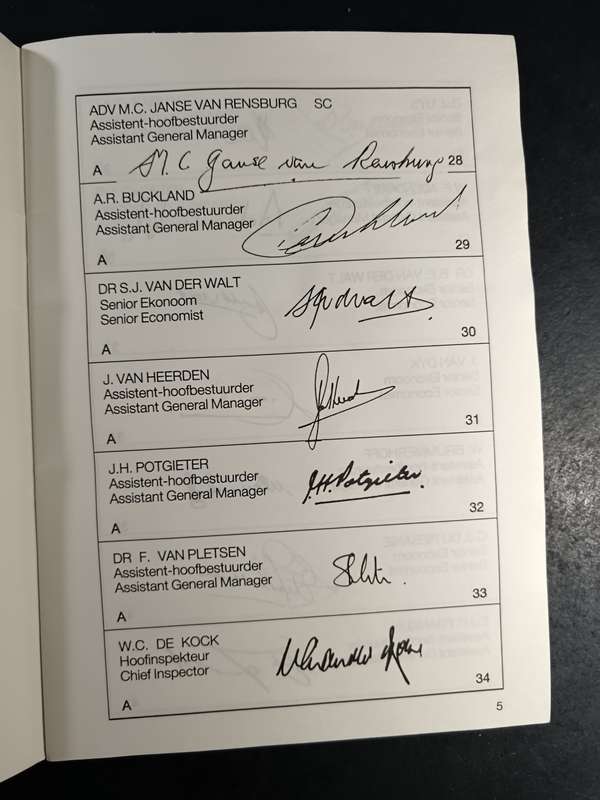 ADV M.C. JANSE VAN RENSBURG SC
Assistent-hoofbestuurder
Assistant General Manager
M. C Janse van Rensburg
A 28
A.R. BUCKLAND
Assistent-hoofbestuurder
Assistant General Manager
A 29
DR S.J. VAN DER WALT
Senior Ekonoom
Senior Economist
SJvdWalt
A 30
J. VAN HEERDEN
Assistent-hoofbestuurder
Assistant General Manager
A 31
J.H. POTGIETER
Assistent-hoofbestuurder
Assistant General Manager
J.H. Potgieter
A 32
DR F. VAN PLETSEN
Assistent-hoofbestuurder
Assistant General Manager
A 33
W.C. DE KOCK
Hoofinspekteur
Chief Inspector
A 34
5